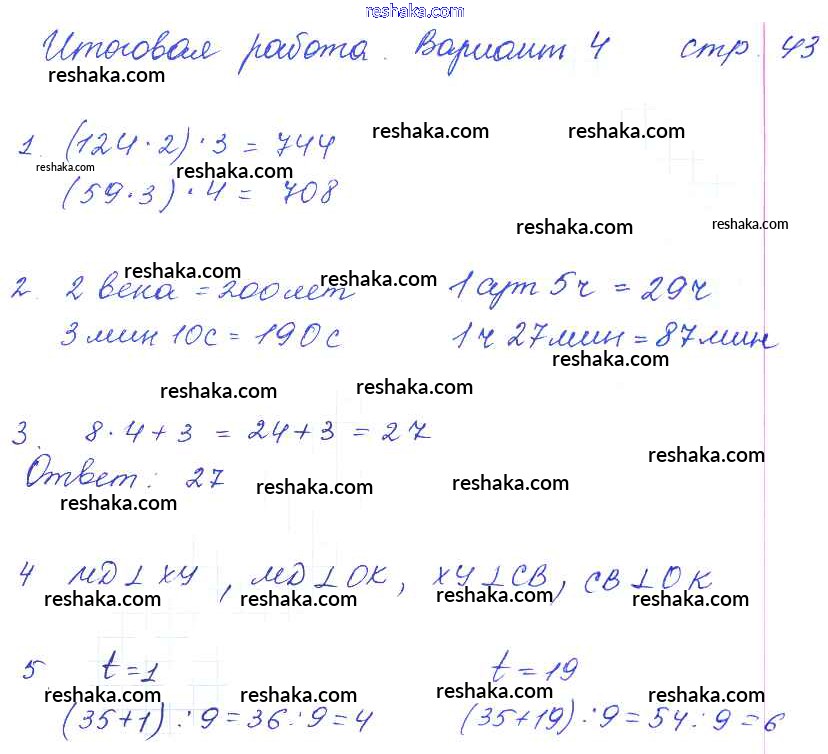 reshaka.com
Итоговая работа. Вариант 4 стр. 43
reshaka.com
1. (124·2)·3 = 744 reshaka.com reshaka.com
reshaka.com reshaka.com
(59·3)·4 = 708
reshaka.com reshaka.com
reshaka.com reshaka.com
2. 2 века = 200 лет 1 сут 5ч = 29ч
3 мин 10с = 190с 1ч 27мин = 87мин
reshaka.com
reshaka.com reshaka.com
3. 8·4+3 = 24+3 = 27
reshaka.com
Ответ: 27
reshaka.com reshaka.com reshaka.com
4 MD⊥XY, MD⊥OK, XY⊥CB, CB⊥OK
reshaka.com reshaka.com reshaka.com reshaka.com
5. t=1 t=19
reshaka.com reshaka.com reshaka.com reshaka.com
(35+1):9=36:9=4 (35+19):9=54:9=6